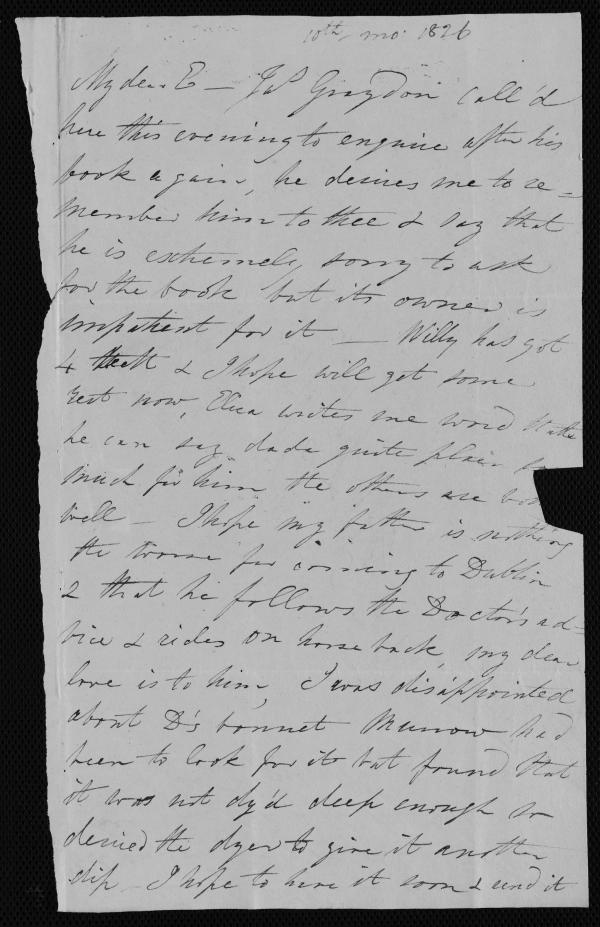 10th mo: 1826
My dear E – Jas Graydon call'd
here this evening to enquire after his
book again, he desires me to re-
member him to thee & say that
he is extremely sorry to ask
for the book but its owner is
impatient for it – Willy has got
4 teeth & I hope will get some
rest now, Eliza writes me word that
he can say dada quite plain so
much for him the others are
well – I hope my father is nothing
the worse for coming to Dublin
& that he follows the Doctor's ad-
vice & rides on horse back, my dear
love is to him, I was disappointed
about D's bonnet had
been to look for it but found that
it was not dy'd deep enough so
desired the dyer to give it another
dip – I hope to have it soon & send it